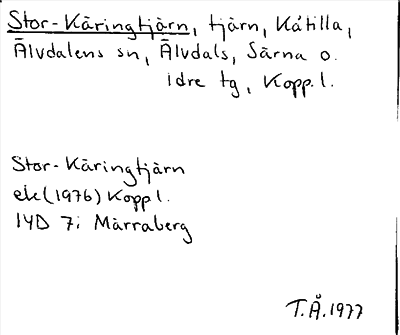 Stor-Käringtjärn, tjärn, Kåtilla,
Älvdalens sn, Älvdals, Särna o.
idre tg, Kopp.l.
Stor-Käringtjärn
ek (1976) Kopp l.
14D 7i Märraberg
T.Å. 1977